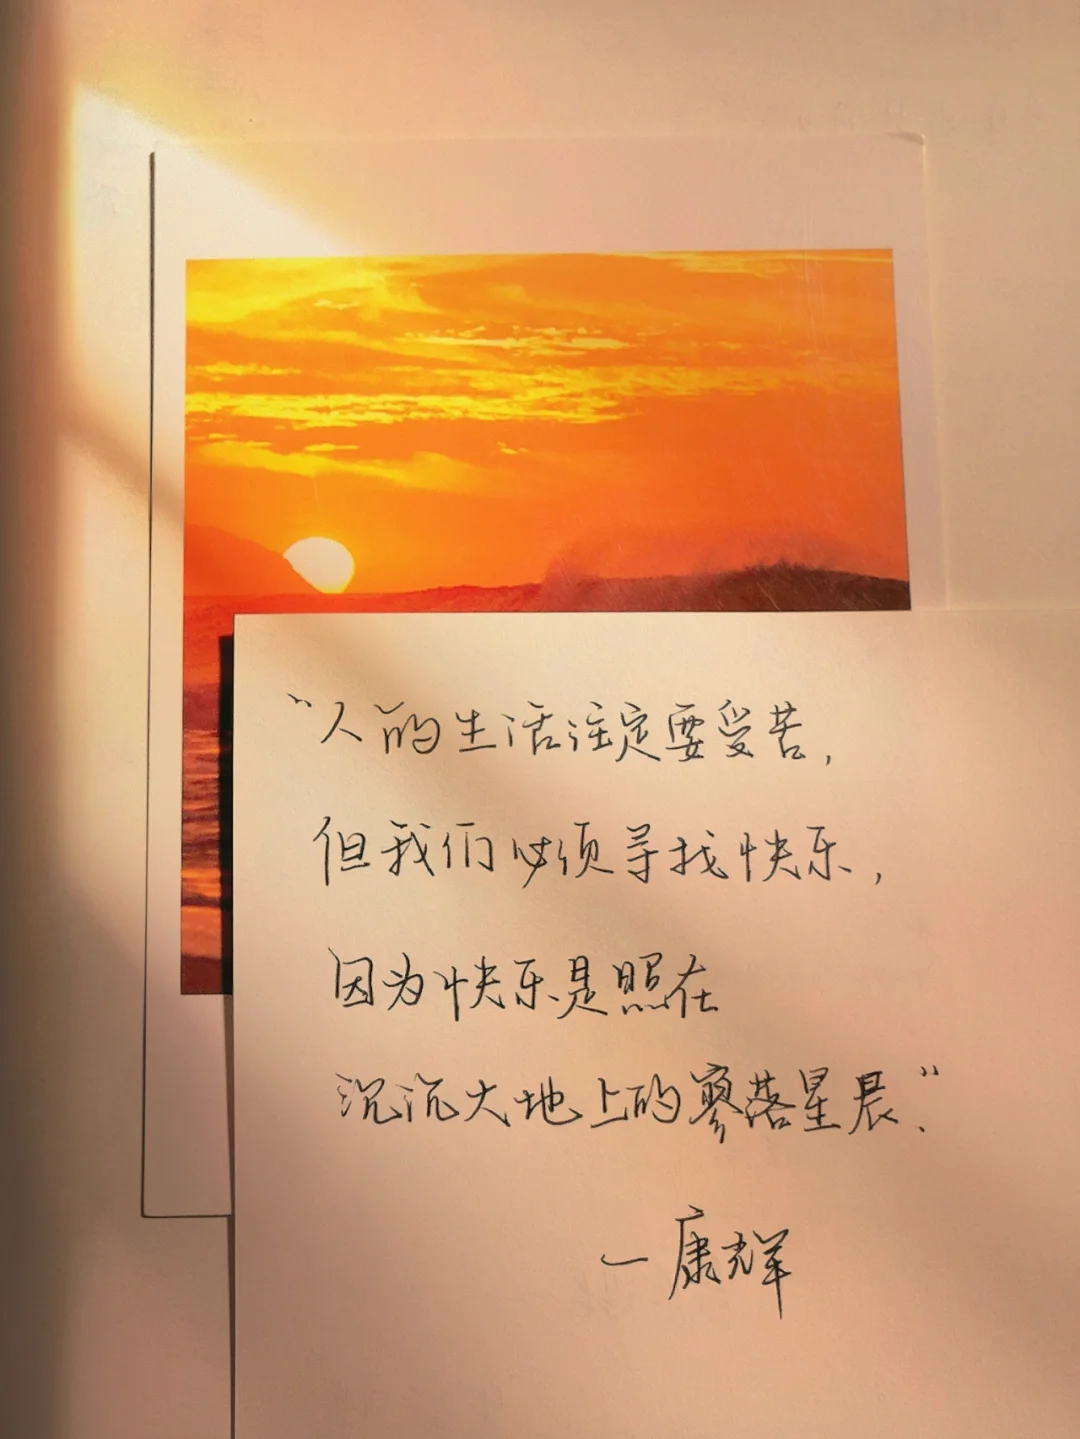 “人的生活注定要受苦，
但我们必须寻找快乐，
因为快乐是照在
沉沉大地上的寥落星晨.”
—康辉